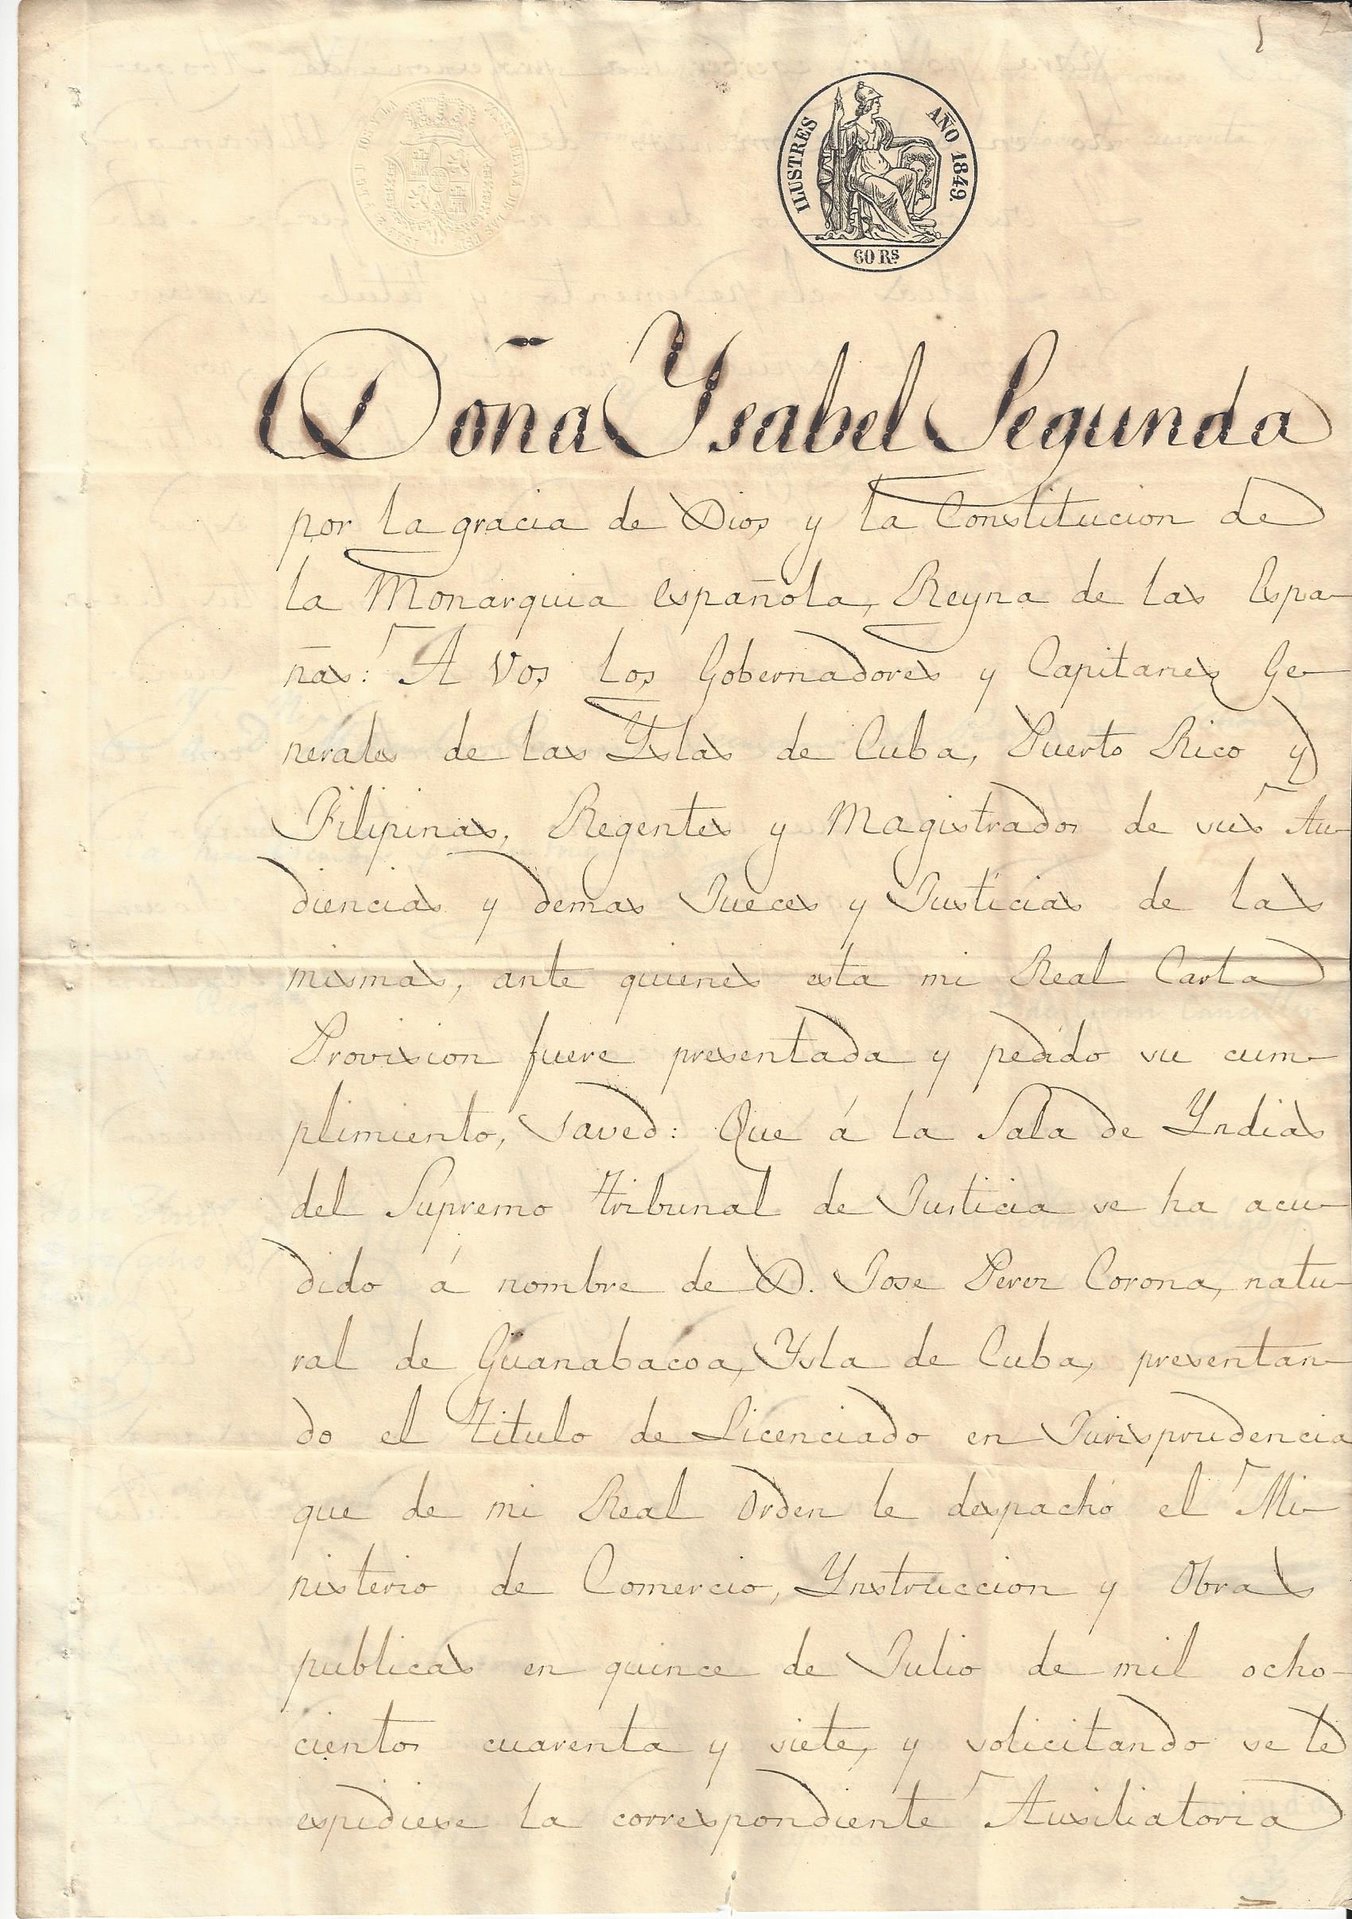 ILUSTRES
AÑO 1849.
60 Rs.
Doña Ysabel Segunda
por la gracia de Dios y la Constitucion de
la Monarquia española, Reyna de las Espa-
ñas: A vos los Gobernadores y Capitanes Ge-
nerales de las Yslas de Cuba, Puerto Rico y
Filipinas, Regentes y Magistrados de sus Au-
diencias y demas Jueces y Justicias de las
mismas, ante quienes esta mi Real Carta
Provision fuere presentada y pedido su cum-
plimiento, saved: Que á la Sala de Yndias
del Supremo Tribunal de Justicia se ha acu-
dido á nombre de D. Jose Perez Corona, natu-
ral de Guanabacoa, Ysla de Cuba, presentan-
do el titulo de Licenciado en Jurisprudencia
que de mi Real Orden le despachó el Mi-
nisterio de Comercio, Ynstruccion y Obras
publicas en quince de Julio de mil ocho-
cientos cuarenta y siete, y solicitando se le
expidiese la correspondiente Auxiliatoria